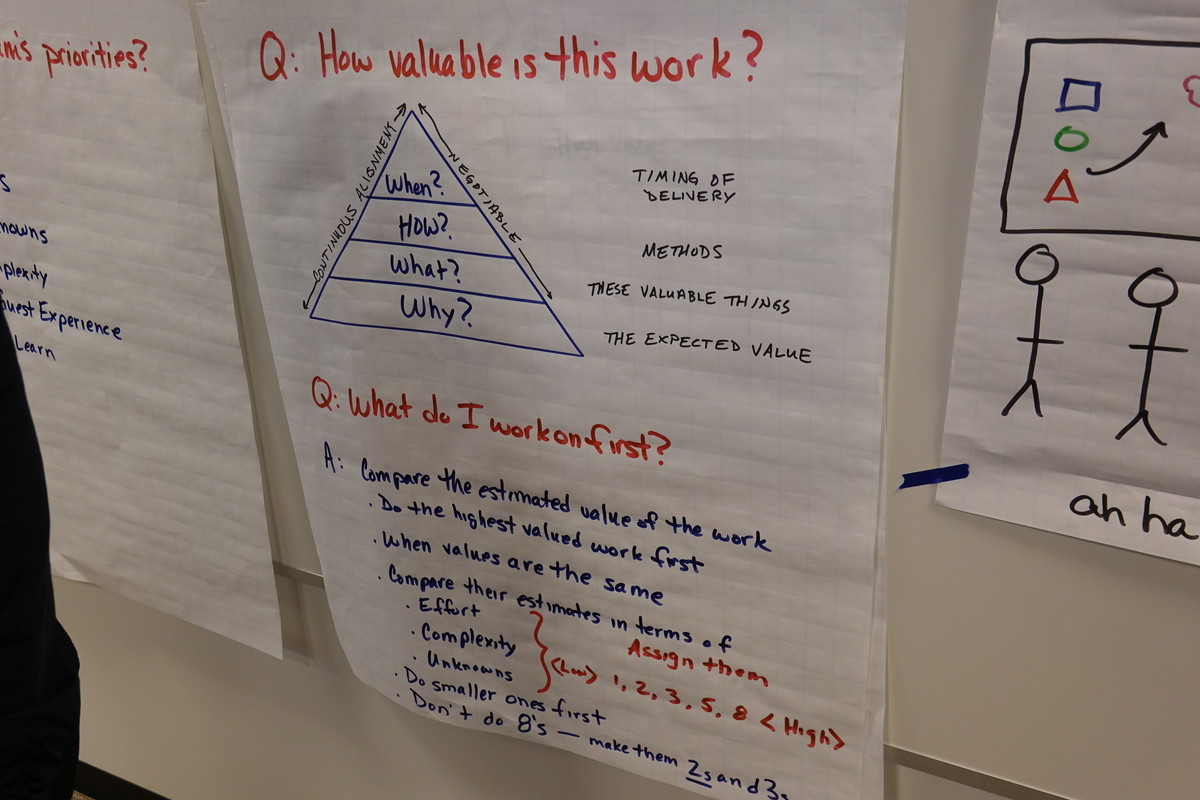 priorities?
nowns
Experience
Learn
Q: How valuable is this work?
CONTINUOUS ALIGNMENT
NEGOTIABLE
When?
TIMING OF
DELIVERY
HOW?
METHODS
What?
THESE VALUABLE THINGS
Why?
THE EXPECTED VALUE
Q: What do I work on first?
A: Compare the estimated value of the work
· Do the highest valued work first
· When values are the same
· Compare their estimates in terms of
· Effort
· Complexity
· Unknowns
Assign them
<Low> 1, 2, 3, 5, 8 <High>
· Do smaller ones first
· Don't do 8's — make them 2s and 3s
ah ha